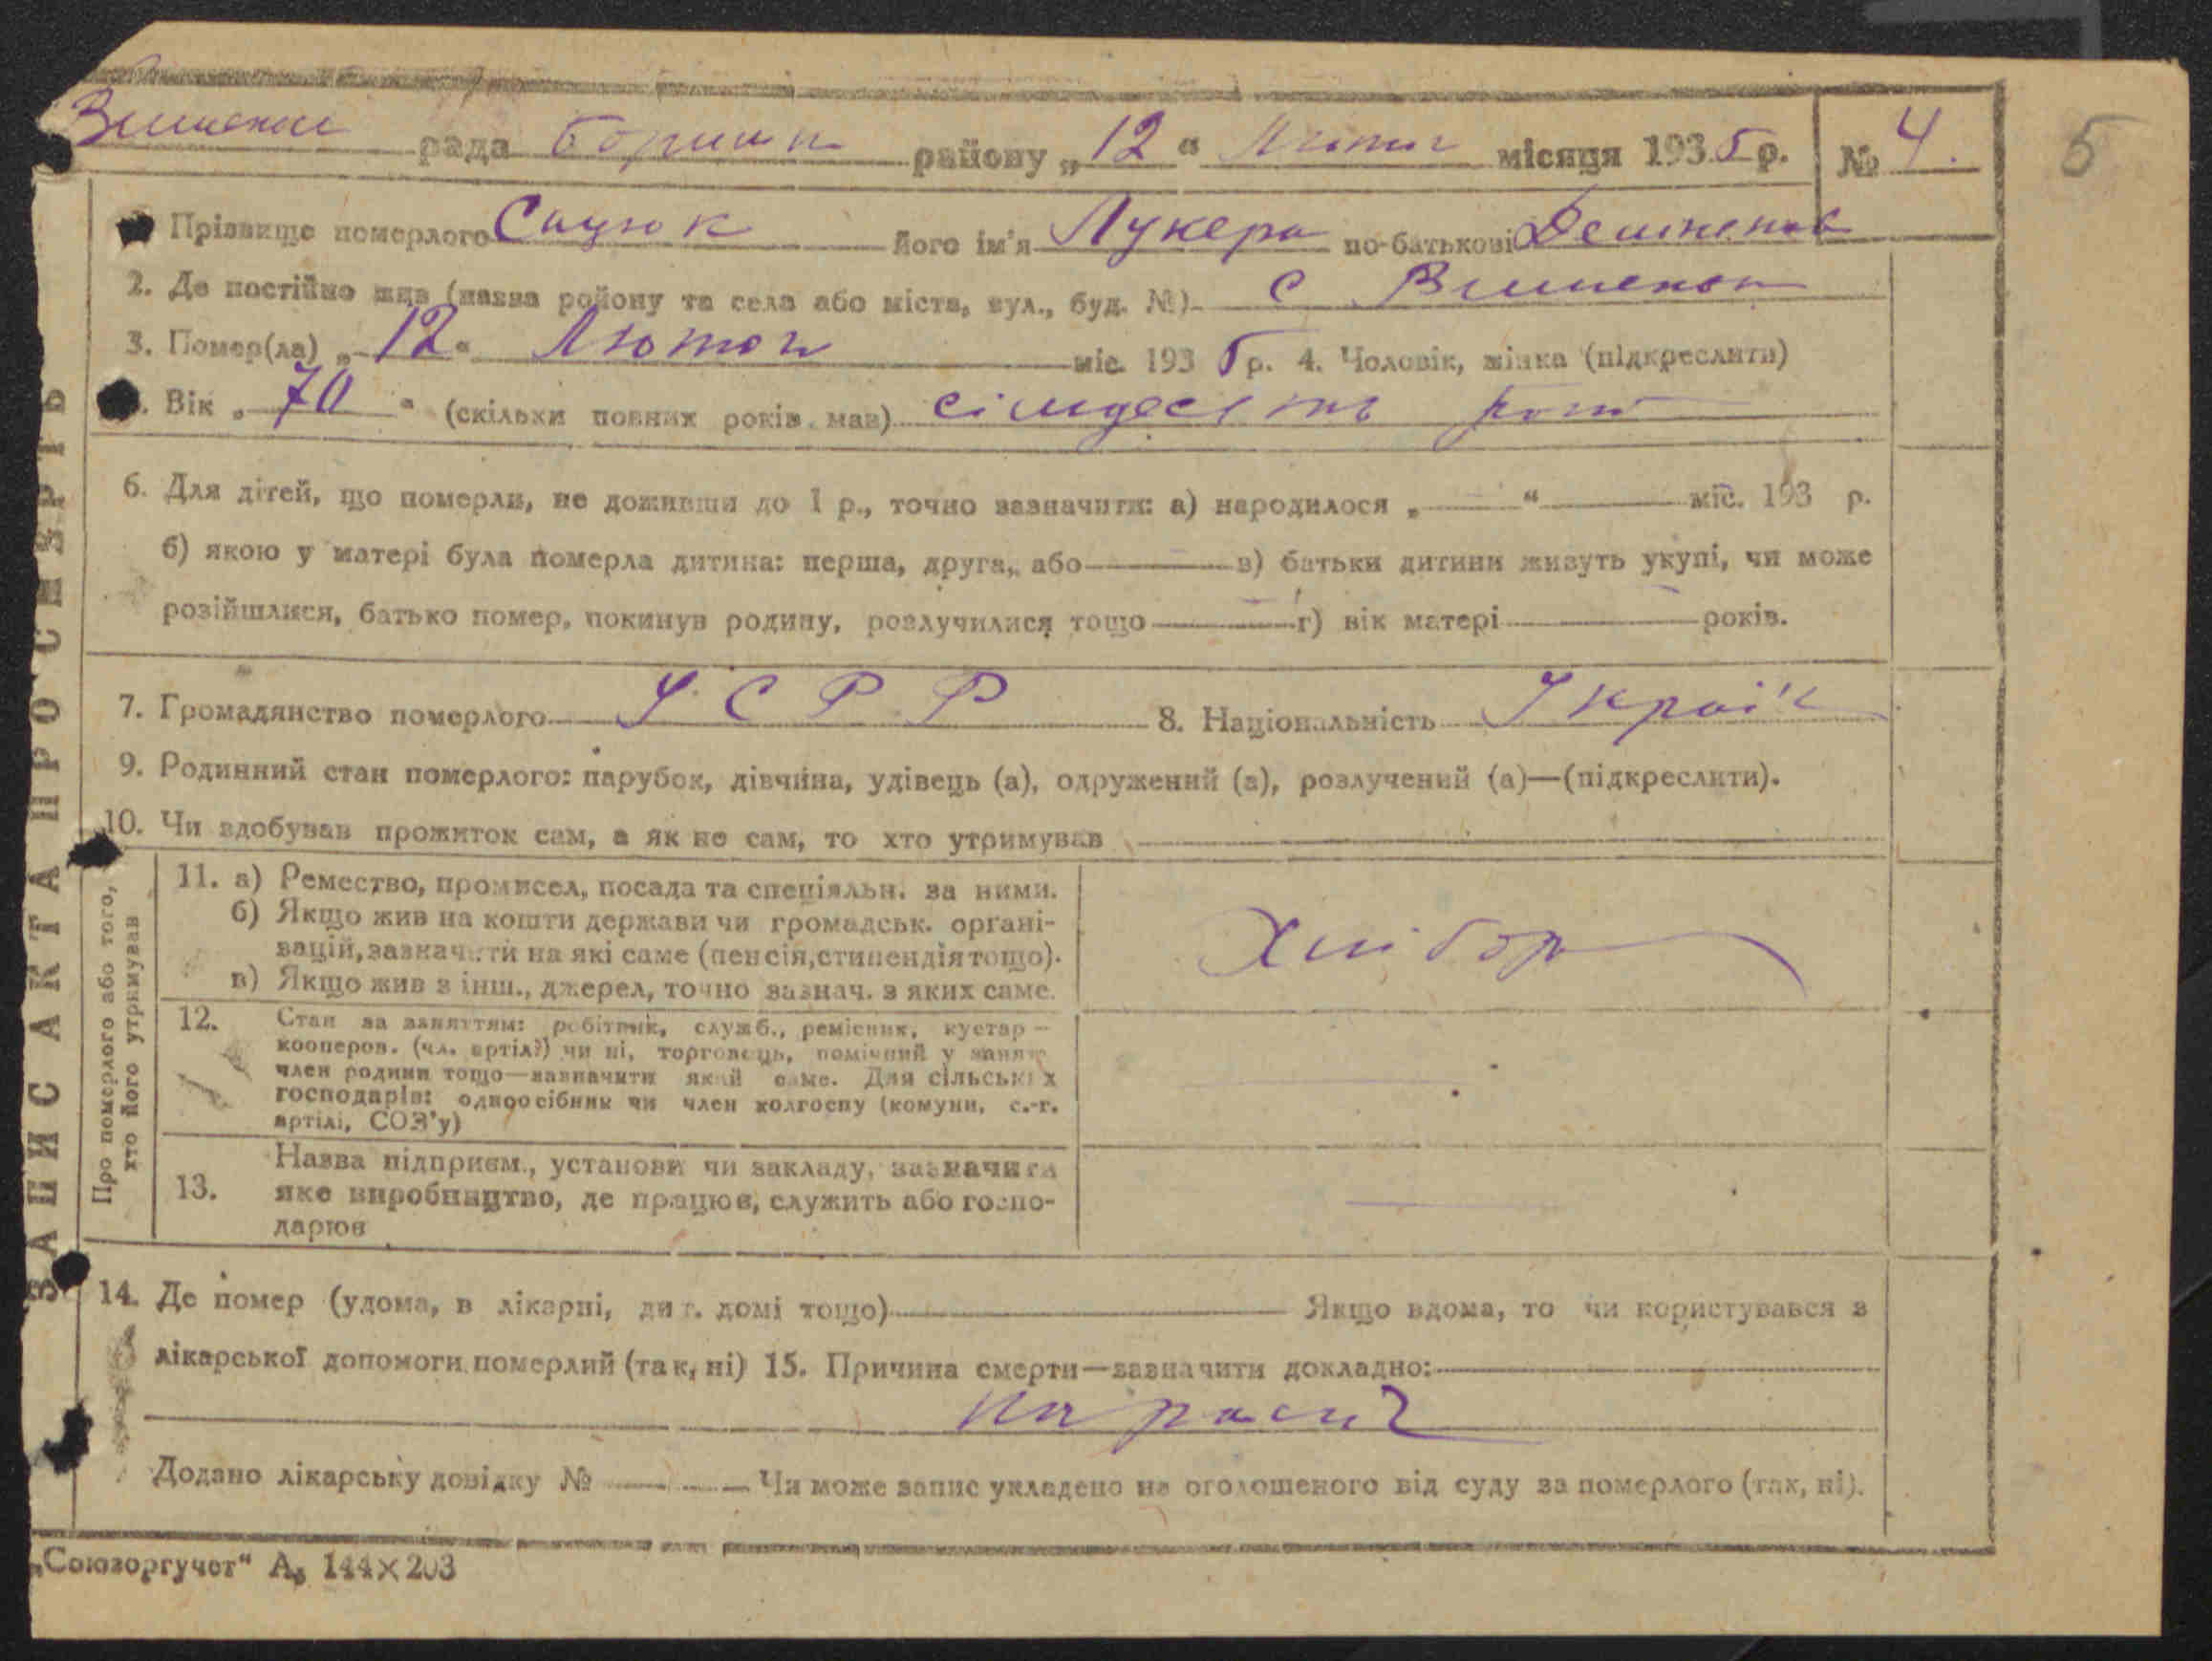 рада району „12“ місяця 1935 р. № 4.
5
Прізвище померлого Сацюк його ім'я Лукера по-батькові
2. Де постійно жив (назва району та села або міста, вул., буд. №) с
3. Помер(ла) „12“ Лютого міс. 1935 р. 4. Чоловік, жінка (підкреслити)
Вік „70“ (скільки повних років мав) сімдесять
6. Для дітей, що померли, не доживши до 1 р., точно зазначити: а) народилося „ “ міс. 193 р.
б) якою у матері була померла дитина: перша, друга, або — в) батьки дитини живуть укупі, чи може
розійшлися, батько помер, покинув родину, розлучилися тощо — г) вік матері — років.
7. Громадянство померлого УСРР 8. Національність Україн
9. Родинний стан померлого: парубок, дівчина, удівець (а), одружений (а), розлучений (а)—(підкреслити).
10. Чи здобував прожиток сам, а як не сам, то хто утримував
Про померлого або того,
хто його утримував
11. а) Ремество, промисел, посада та спеціяльн. за ними.
б) Якщо жив на кошти держави чи громадськ. органі-
зацій, зазначити на які саме (пенсія, стипендія тощо).
в) Якщо жив з інш., джерел, точно зазнач. з яких саме.
Хлібор
12. Стан за заняттям: робітник, служб., ремісник, кустар –
кооперов. (чл. артілі) чи ні, торговець, помічний у занят.
член родини тощо—зазначити який саме. Для сільських
господарів: одноосібник чи член колгоспу (комуни, с.-г.
артілі, СОЗ'у)
13. Назва підприєм., установи чи закладу, зазначити
яке виробництво, де працює, служить або госпо-
дарює
14. Де помер (удома, в лікарні, дит. домі тощо) — Якщо вдома, то чи користувався з
лікарської допомоги померлий (так, ні) 15. Причина смерти—зазначити докладно:
Додано лікарську довідку № — Чи може запис укладено на оголошеного від суду за померлого (так, ні).
„Союзоргучет“ А₅ 144×203
ЗАПИС АКТА ПРО СМЕРТЬ